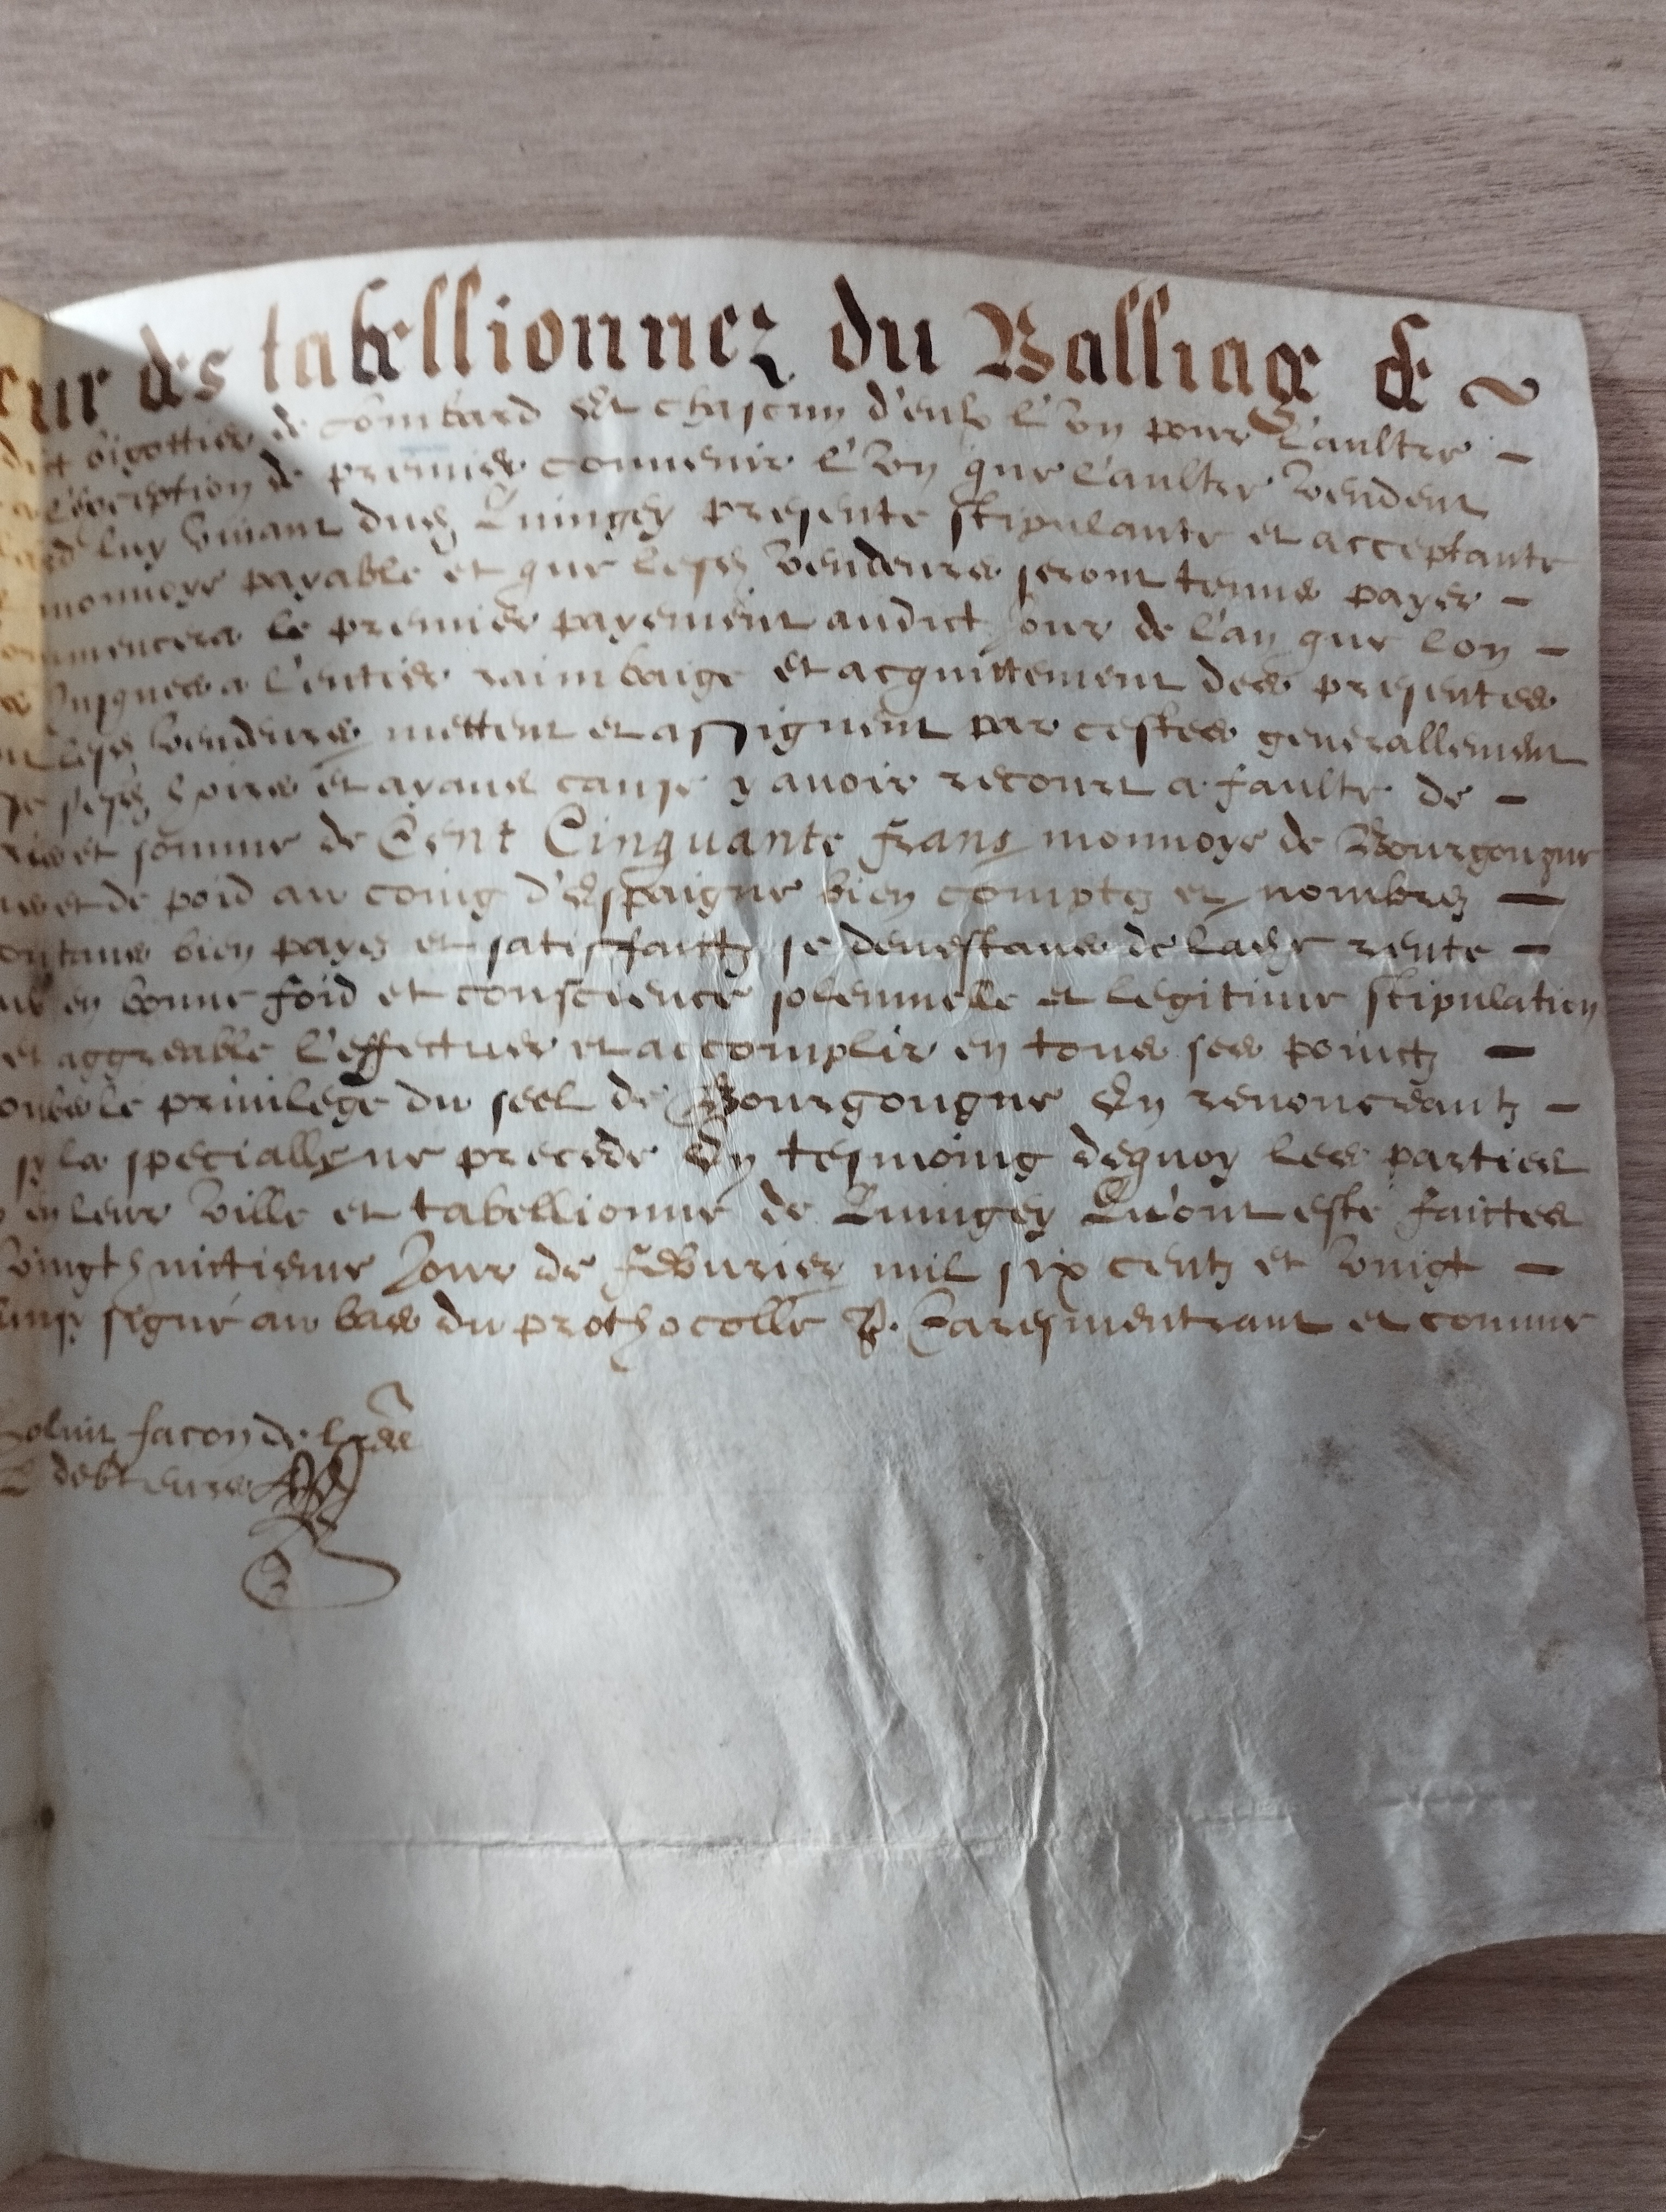 eur des tabellionnez du Balliage de ~
dict bigottier de Combard Et chascun d'eulx l'Un pour L'aultre -
a l'exception de premier convenir l'Un que l'aultre Vendent
luy vivant dudz Quingey presente stipulante et acceptante
monnoye payable et que lesdz Vendeurs seront tenus payer -
commencera le premier payement audict Jour de l'an que lon -
Jusques a l'entier raimbaige et acquittement des presentes
lesdz Vendeurs mettent et assignent par cestes generallement
sesdz hoirs et ayans cause y avoir recourt a faulte de -
et somme de Cent Cinquante frans monnoye de Bourgongne
et de poid au coing d'Espaigne bien comptez et nombrez -
bien payez et satisfaictz se devestans de ladze rente -
en bonne foid et conscience solennelle et legitime stipulation
et aggreable l'effectuer et accomplir en tous ses poinctz -
le privilege du seel de Bourgongne En renonceantz -
sy la speciallze ne precede En tesmoing dequoy les parties
en leur Ville et tabellionne de Quingey Qu'ont esté faictes
Vingthuictieme Jour de febvrier mil six centz et Vingt -
signé au bas du prothocolle P. Caresmentrant et comme
facon de lres
debteurs